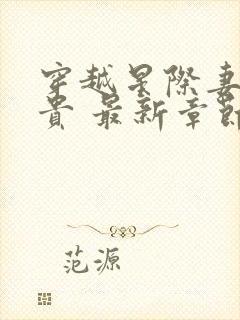 穿越星際妻
貴 最新章節
范源